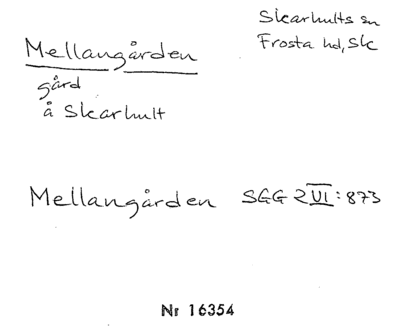 Skarhults sn
Frosta hd, Sk
Mellangården
gård
å Skarhult
Mellangården SGG 2VI:873
Nr 16354